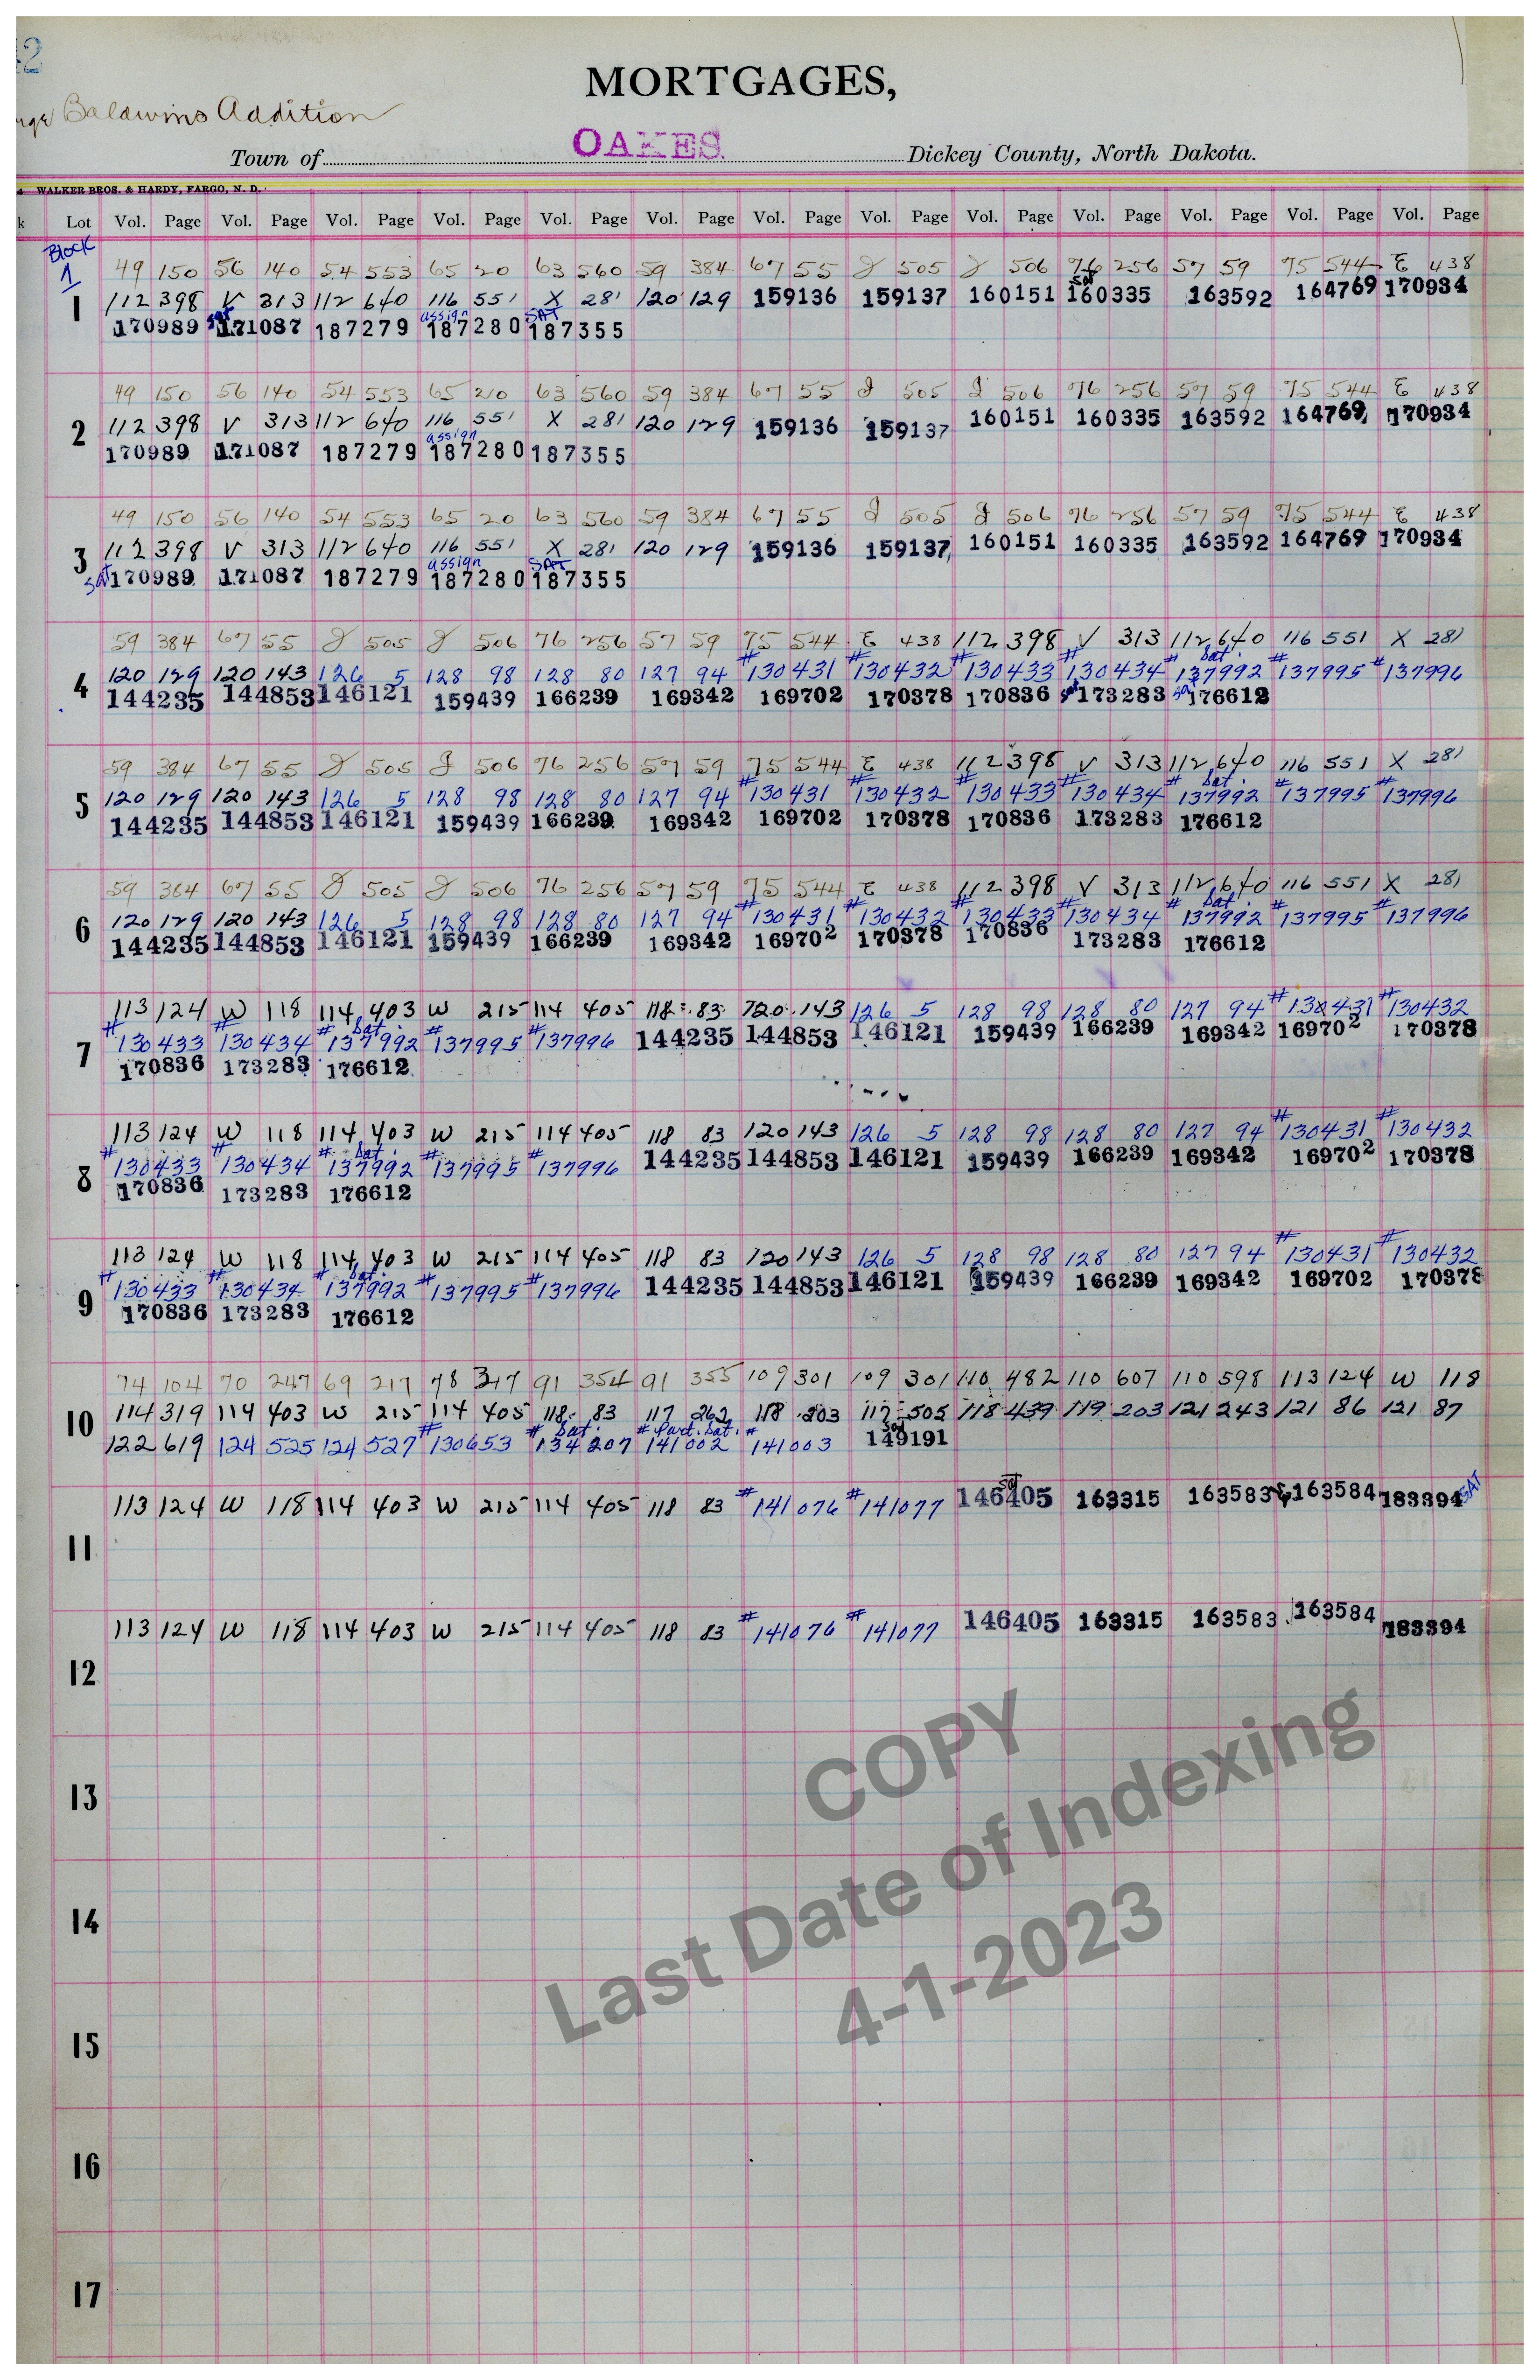 MORTGAGES,
Baldwins Addition
OAKES
Town of Dickey County, North Dakota.
WALKER BROS. & HARDY, FARGO, N. D.
k Lot Vol. Page Vol. Page Vol. Page Vol. Page Vol. Page Vol. Page Vol. Page Vol. Page Vol. Page Vol. Page Vol. Page Vol. Page Vol. Page
Block
1
49 150 56 140 54 553 65 20 63 560 59 384 67 55 J 505 J 506 76 256 57 59 75 544 E 438
sat
1 112 398 V 313 112 640 116 551 X 281 120 129 159136 159137 160151 160335 163592 164769 170934
sat assign SAT
170989 171087 187279 187280 187355
49 150 56 140 54 553 65 210 63 560 59 384 67 55 J 505 J 506 76 256 57 59 75 544 E 438
2 112 398 V 313 112 640 116 551 X 281 120 129 159136 159137 160151 160335 163592 164769 170934
assign
170989 171087 187279 187280 187355
49 150 56 140 54 553 65 20 63 560 59 384 67 55 J 505 J 506 76 256 57 59 75 544 E 438
3 112 398 V 313 112 640 116 551 X 281 120 129 159136 159137 160151 160335 163592 164769 170934
assign SAT
sat 170989 171087 187279 187280 187355
59 384 67 55 J 505 J 506 76 256 57 59 75 544 E 438 112 398 V 313 112 640 116 551 X 281
Sat.
4 120 129 120 143 126 5 128 98 128 80 127 94 #130431 #130432 #130433 #130434 #137992 #137995 #137996
144235 144853 146121 159439 166239 169342 169702 170378 170836 sat 173283 sat 176612
59 384 67 55 J 505 J 506 76 256 57 59 75 544 E 438 112 398 V 313 112 640 116 551 X 281
Sat.
5 120 129 120 143 126 5 128 98 128 80 127 94 #130431 #130432 #130433 #130434 #137992 #137995 #137996
144235 144853 146121 159439 166239 169342 169702 170378 170836 173283 176612
59 384 67 55 J 505 J 506 76 256 57 59 75 544 E 438 112 398 V 313 112 640 116 551 X 281
Sat.
6 120 129 120 143 126 5 128 98 128 80 127 94 #130431 #130432 #130433 #130434 #137992 #137995 #137996
144235 144853 146121 159439 166239 169342 169702 170378 170836 173283 176612
113 124 W 118 114 403 W 215 114 405 118 83 120 143 126 5 128 98 128 80 127 94 #130431 #130432
Sat.
7 #130433 #130434 #137992 #137995 #137996 144235 144853 146121 159439 166239 169342 169702 170378
170836 173283 176612
113 124 W 118 114 403 W 215 114 405 118 83 120 143 126 5 128 98 128 80 127 94 #130431 #130432
Sat.
8 #130433 #130434 #137992 #137995 #137996 144235 144853 146121 159439 166239 169342 169702 170378
170836 173283 176612
113 124 W 118 114 403 W 215 114 405 118 83 120 143 126 5 128 98 128 80 127 94 #130431 #130432
Sat.
9 #130433 #130434 #137992 #137995 #137996 144235 144853 146121 159439 166239 169342 169702 170378
170836 173283 176612
74 104 70 247 69 217 78 317 91 354 91 355 109 301 109 301 110 482 110 607 110 598 113 124 W 118
10 114 319 114 403 W 215 114 405 118 83 117 262 118 203 117 505 118 439 119 203 121 243 121 86 121 87
Sat. Part. Sat. Sat
122 619 124 525 124 527 #130653 #134207 #141002 #141003 149191
sat
113 124 W 118 114 403 W 215 114 405 118 83 #141076 #141077 146405 163315 163583 163584 183394 SAT
11
113 124 W 118 114 403 W 215 114 405 118 83 #141076 #141077 146405 163315 163583 163584 183394
12
13
14
15
16
17
COPY
Last Date of Indexing
4-1-2023